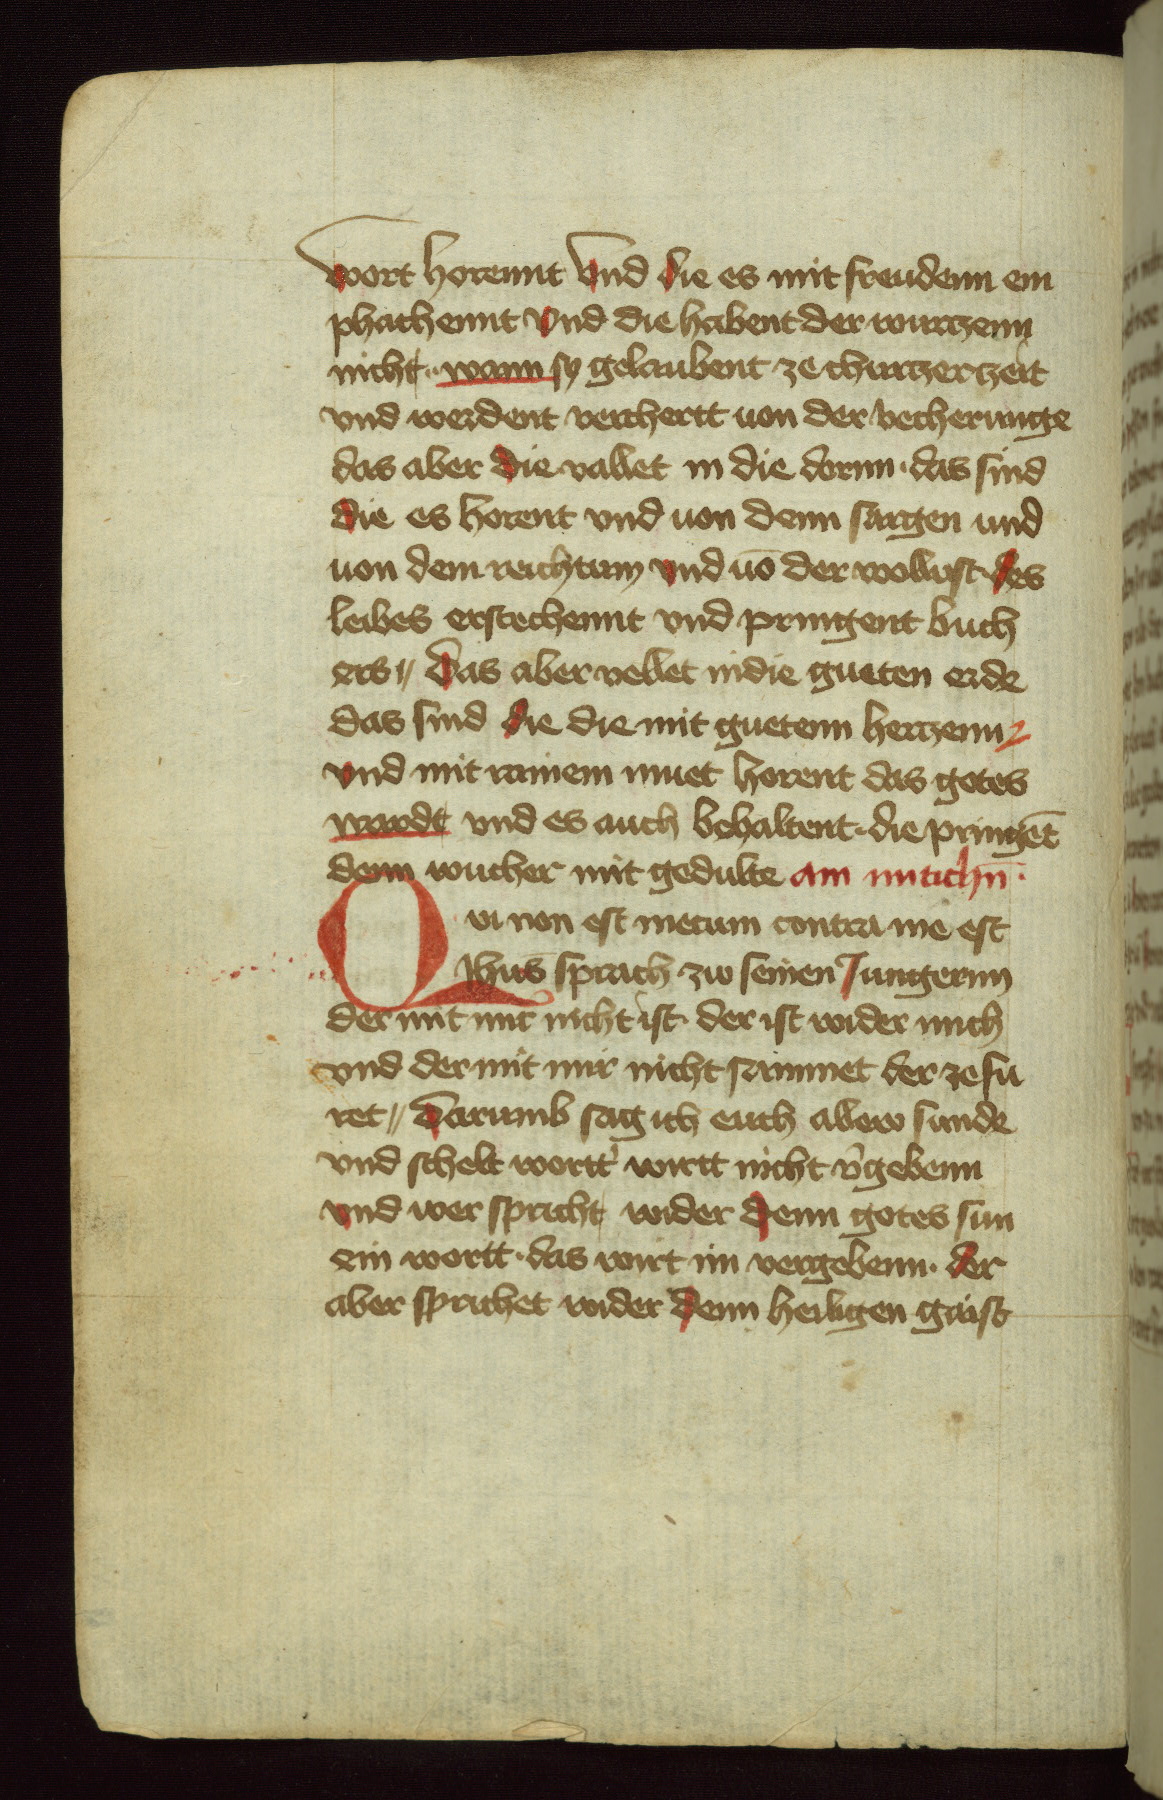 wort horennt Vnd die es mit freudenn em
phachennt vnd die habent der wurczenn
nicht · wann sy gelaubent ze churczer zeit
vnd werdent verchertt uon der becherunge
das aber die vallet in die dornn · das sind
die es horent vnd uon denn sargen und
uon dem reichtum vnd uō der wollust · des
leibes ersteckennt vnd pringent buch
ers // Das aber vellet in die gueten erde
das sind die die mit guetenn herczenn
vnd mit rainem muet horent das gotes
wardt vnd es auch behaltent · die pringēt
denn wucher mit gedulte am mitichñ ·
Qvi non est mecum contra me est
Jhus̄ sprach zw seinen Jungernn
der mit mir nicht ist · der ist wider mich
vnd der mit mir nicht sammet der zefu
ret // Darumb sag ich euch allew sunde
vnd schelt wortt wirtt nicht v̄gebenn
vnd wer spricht wider denn gotes sun
ein wortt · das wirt im vergebenn · der
aber sprichet wider denn heiligen gaist